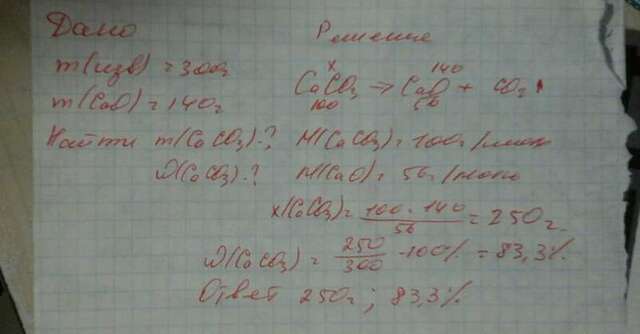 Дано
m(изв) = 300г
m(CaO) = 140г
Найти m(CaCO3)-?
W(CaCO3)-?
Решение
x 140
CaCO3 → CaO + CO2↑
100 56
M(CaCO3) = 100г/моль
M(CaO) = 56г/моль
x(CaCO3) = 100 · 140 / 56 = 250г.
W(CaCO3) = 250 / 300 · 100% = 83,3%
Ответ 250г; 83,3%